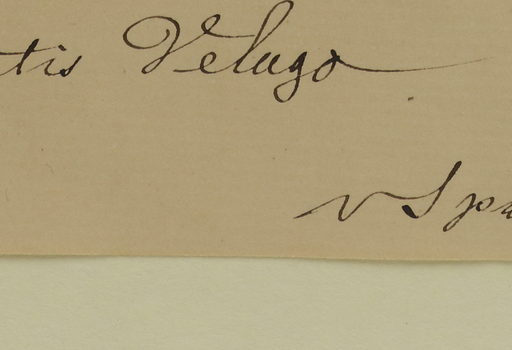 tis Velago
v Spr